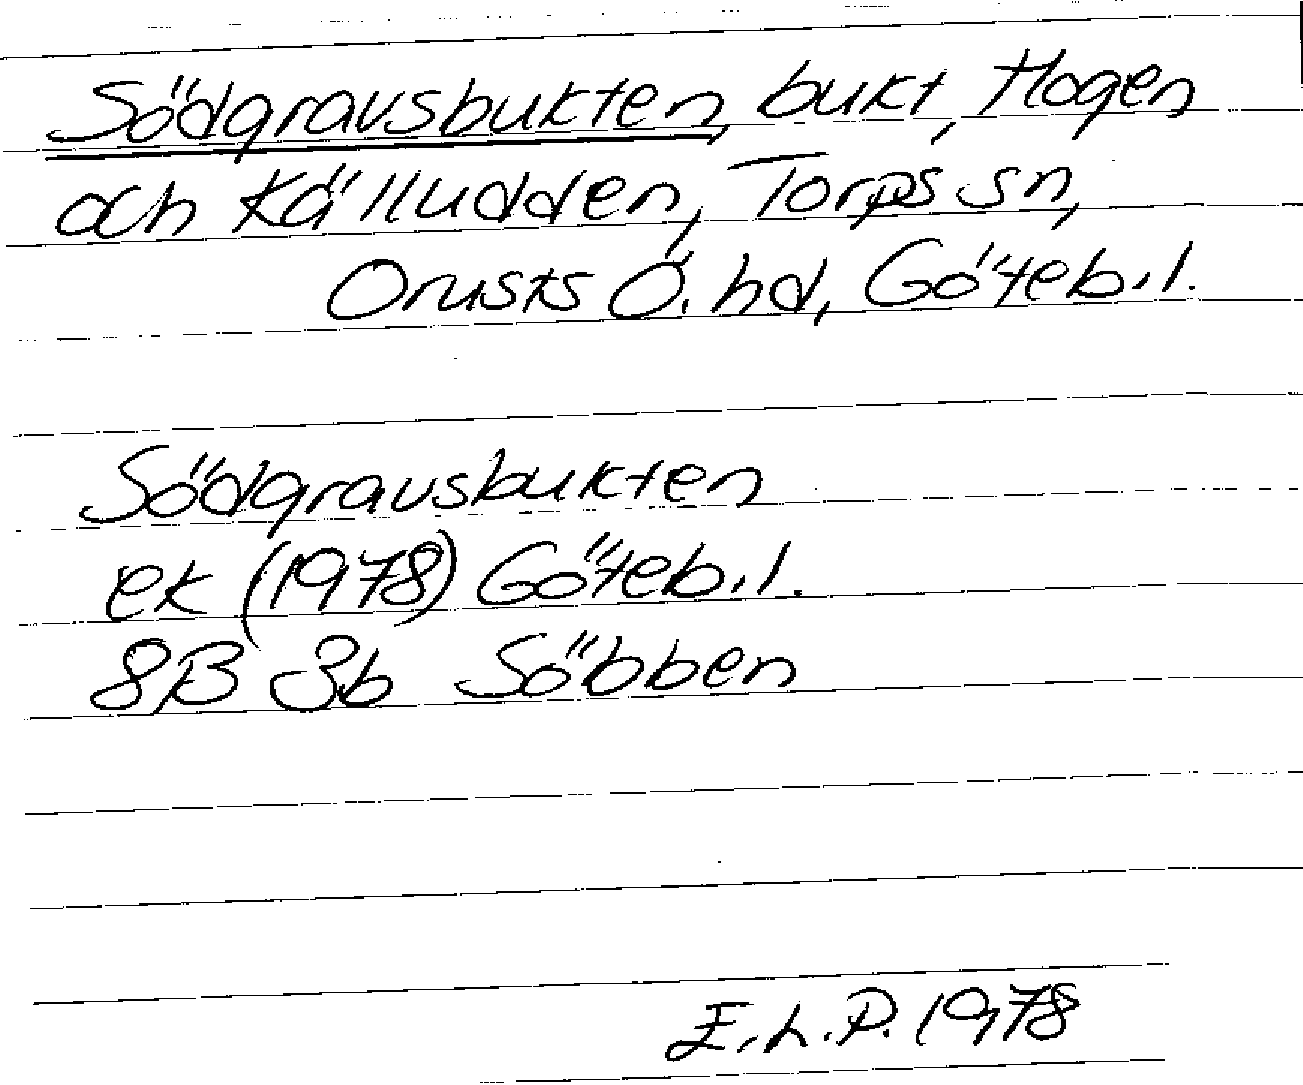 Södgravsbukten, bukt, Hogen
och Källudden, Torps sn,
Orusts Ö. hd, Göteb. l.
Södgravsbukten
ek (1978) Göteb. l.
8B 3b Söbben
E.L.P. 1978